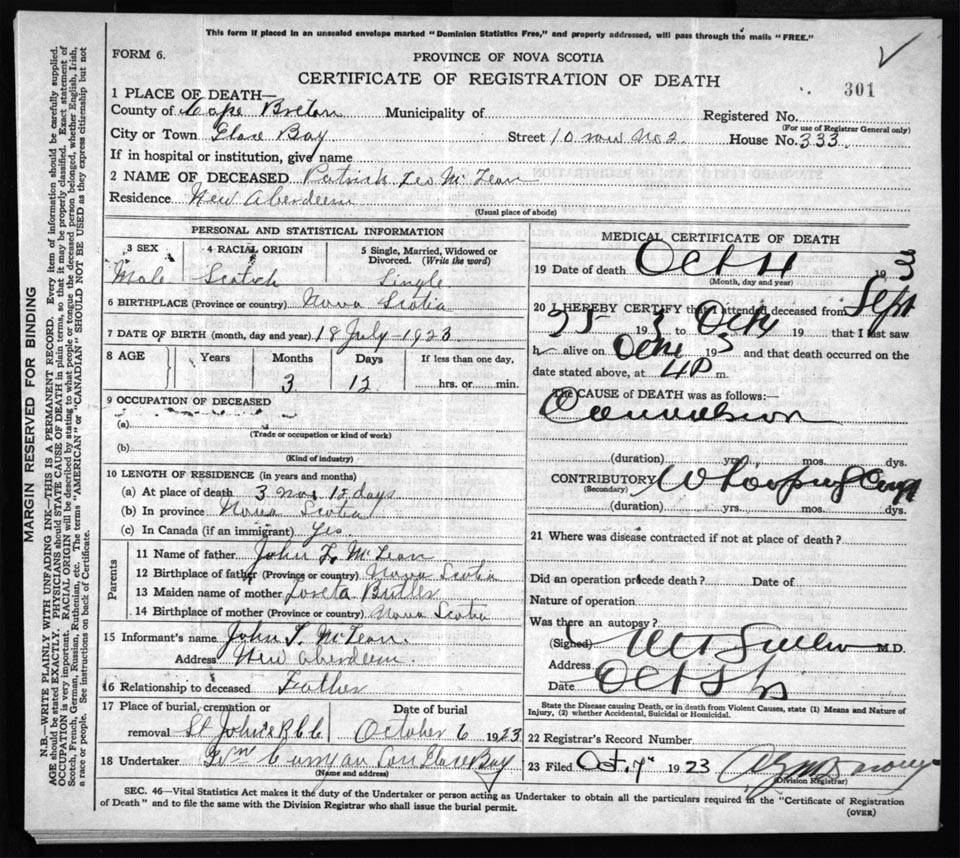 This form if placed in an unsealed envelope marked "Dominion Statistics Free," and properly addressed, will pass through the mails "FREE."
FORM 6.
PROVINCE OF NOVA SCOTIA
CERTIFICATE OF REGISTRATION OF DEATH
301
1 PLACE OF DEATH—
County of Cape Breton Municipality of Registered No.
(For use of Registrar General only)
City or Town Glace Bay Street 10 row No 2 House No. 333.
If in hospital or institution, give name
2 NAME OF DECEASED Patrick Leo McLean
Residence New Aberdeen
(Usual place of abode)
PERSONAL AND STATISTICAL INFORMATION
3 SEX 4 RACIAL ORIGIN 5 Single, Married, Widowed or Divorced. (Write the word)
Male Scotch Single
6 BIRTHPLACE (Province or country) Nova Scotia
7 DATE OF BIRTH (month, day and year) 18 July - 1923
8 AGE Years Months Days If less than one day,
3 12 hrs. or min.
9 OCCUPATION OF DECEASED
(a)
(Trade or occupation or kind of work)
(b)
(Kind of industry)
10 LENGTH OF RESIDENCE (in years and months)
(a) At place of death 3 mos 12 days
(b) In province Nova Scotia
(c) In Canada (if an immigrant) Yes
Parents
11 Name of father John McLean
12 Birthplace of father (Province or country) Nova Scotia
13 Maiden name of mother Loreta Butler
14 Birthplace of mother (Province or country) Nova Scotia
15 Informant's name John McLean
Address New Aberdeen.
16 Relationship to deceased Father
17 Place of burial, cremation or Date of burial
removal St John's October 6 1923
18 Undertaker Son Glace Bay
(Name and address)
MEDICAL CERTIFICATE OF DEATH
19 Date of death Oct 19
(Month, day and year)
20 I HEREBY CERTIFY that I attended deceased from Sept
19 3 to Oct 19 that I last saw
h alive on Oct 19 3 and that death occurred on the
date stated above, at 4 P m.
The CAUSE of DEATH was as follows:—
Convulsion
(duration) yrs. mos. dys.
CONTRIBUTORY Whooping Cough
(Secondary)
(duration) yrs. mos. dys.
21 Where was disease contracted if not at place of death?
Did an operation precede death? Date of
Nature of operation
Was there an autopsy?
(Signed) M.D.
Address
Date Oct 5
State the Disease causing Death, or in death from Violent Causes, state (1) Means and Nature of
Injury, (2) whether Accidental, Suicidal or Homicidal.
22 Registrar's Record Number
23 Filed Oct. 7 1923
(Division Registrar)
SEC. 46—Vital Statistics Act makes it the duty of the Undertaker or person acting as Undertaker to obtain all the particulars required in the "Certificate of Registration
of Death" and to file the same with the Division Registrar who shall issue the burial permit.
(OVER)
MARGIN RESERVED FOR BINDING
N.B.—WRITE PLAINLY WITH UNFADING INK—THIS IS A PERMANENT RECORD. Every item of information should be carefully supplied.
AGE should be stated EXACTLY. PHYSICIANS should STATE CAUSE OF DEATH in plain terms, so that it may be properly classified. Exact statement of
OCCUPATION is very important. RACIAL ORIGIN will be described by stating to what people or tongue the deceased person belonged, whether English, Irish,
Scotch, French, German, Russian, Ruthenian, etc. The terms "AMERICAN" or "CANADIAN" SHOULD NOT BE USED as they express citizenship but not
a race or people. See instructions on back of Certificate.